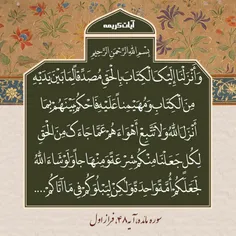 آیات کریمه
بِسْمِ اللَّهِ الرَّحْمَنِ الرَّحِيمِ
وَأَنْزَلْنَا إِلَيْكَ الْكِتَابَ بِالْحَقِّ مُصَدِّقًا لِمَا بَيْنَ يَدَيْهِ
مِنَ الْكِتَابِ وَمُهَيْمِنًا عَلَيْهِ فَاحْكُمْ بَيْنَهُمْ بِمَا
أَنْزَلَ اللَّهُ وَلَا تَتَّبِعْ أَهْوَاءَهُمْ عَمَّا جَاءَكَ مِنَ الْحَقِّ
لِكُلٍّ جَعَلْنَا مِنْكُمْ شِرْعَةً وَمِنْهَاجًا وَلَوْ شَاءَ اللَّهُ
لَجَعَلَكُمْ أُمَّةً وَاحِدَةً وَلَكِنْ لِيَبْلُوَكُمْ فِي مَا آتَاكُمْ ....
سوره مائده، آیه ۴۸، فراز اول